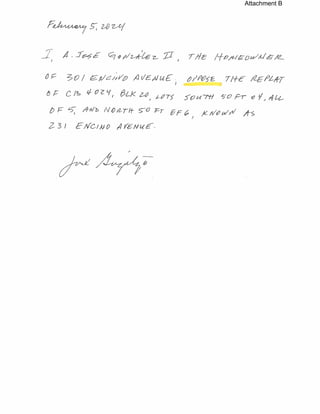 Attachment B
February 5, 2024
I, A. JOSÉ GONZÁLEZ II, THE HOMEOWNER
OF 301 ENCINO AVENUE, OPPOSE THE REPLAT
OF CB 4024, BLK 20, LOTS SOUTH 50 FT OF 4, ALL
OF 5, AND NORTH 50 FT OF 6, KNOWN AS
231 ENCINO AVENUE.